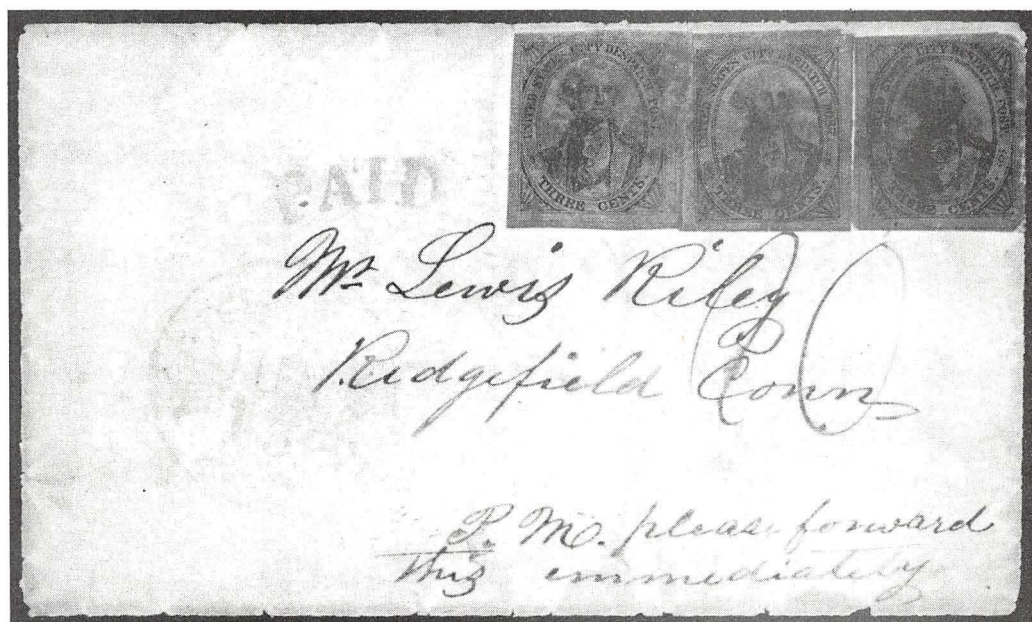 UNITED STATES CITY DESPATCH POST
THREE CENTS.
UNITED STATES CITY DESPATCH POST
THREE CENTS.
UNITED STATES CITY DESPATCH POST
THREE CENTS.
PAID
Mr. Lewis Riley
Ridgefield Conn
P. M. please forward
this immediately